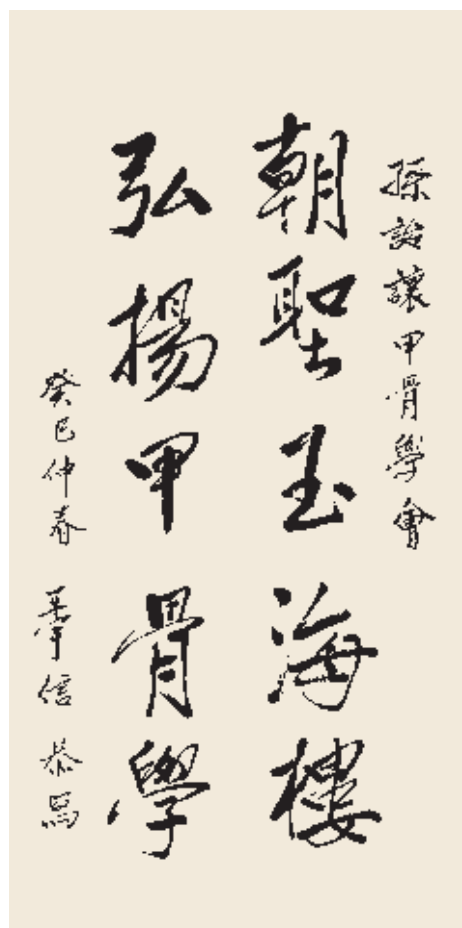 孫詒讓甲骨學會
朝聖玉海樓
弘揚甲骨學
癸巳仲春 王宇信 恭寫